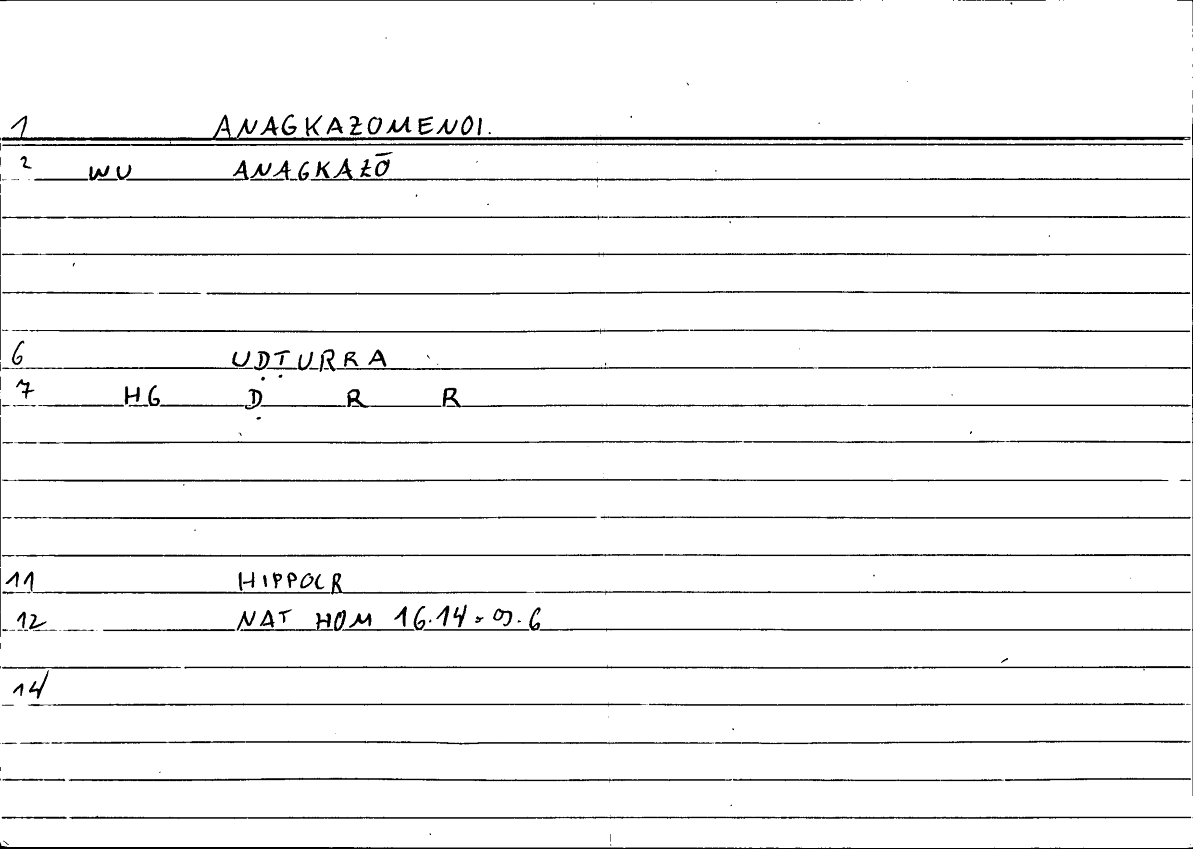 1 ANAGKAZOMENOI.
2 WU ANAGKAZŌ
6 UḌṬURRA
7 HG Ḍ R R
11 HIPPOCR
12 NAT HOM 16.14 = 6
14